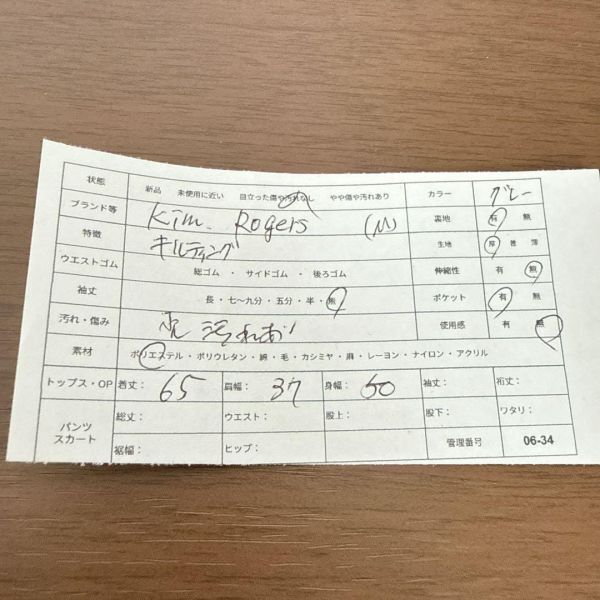 状態 新品 未使用に近い 目立った傷や汚れなし やや傷や汚れあり カラー グレー
ブランド等 Kim. Rogers (M) 裏地 有 無
特徴 キルティング 生地 厚 普 薄
ウエストゴム 総ゴム ・ サイドゴム ・ 後ろゴム 伸縮性 有 無
袖丈 長・七〜九分・五分・半・無 ポケット 有 無
汚れ・傷み 汚れあり 使用感 有 無
素材 ポリエステル・ポリウレタン・綿・毛・カシミヤ・麻・レーヨン・ナイロン・アクリル
トップス・OP 着丈: 65 肩幅: 37 身幅: 50 袖丈: 裄丈:
パンツ スカート 総丈: ウエスト: 股上: 股下: ワタリ:
裾幅: ヒップ: 管理番号 06-34